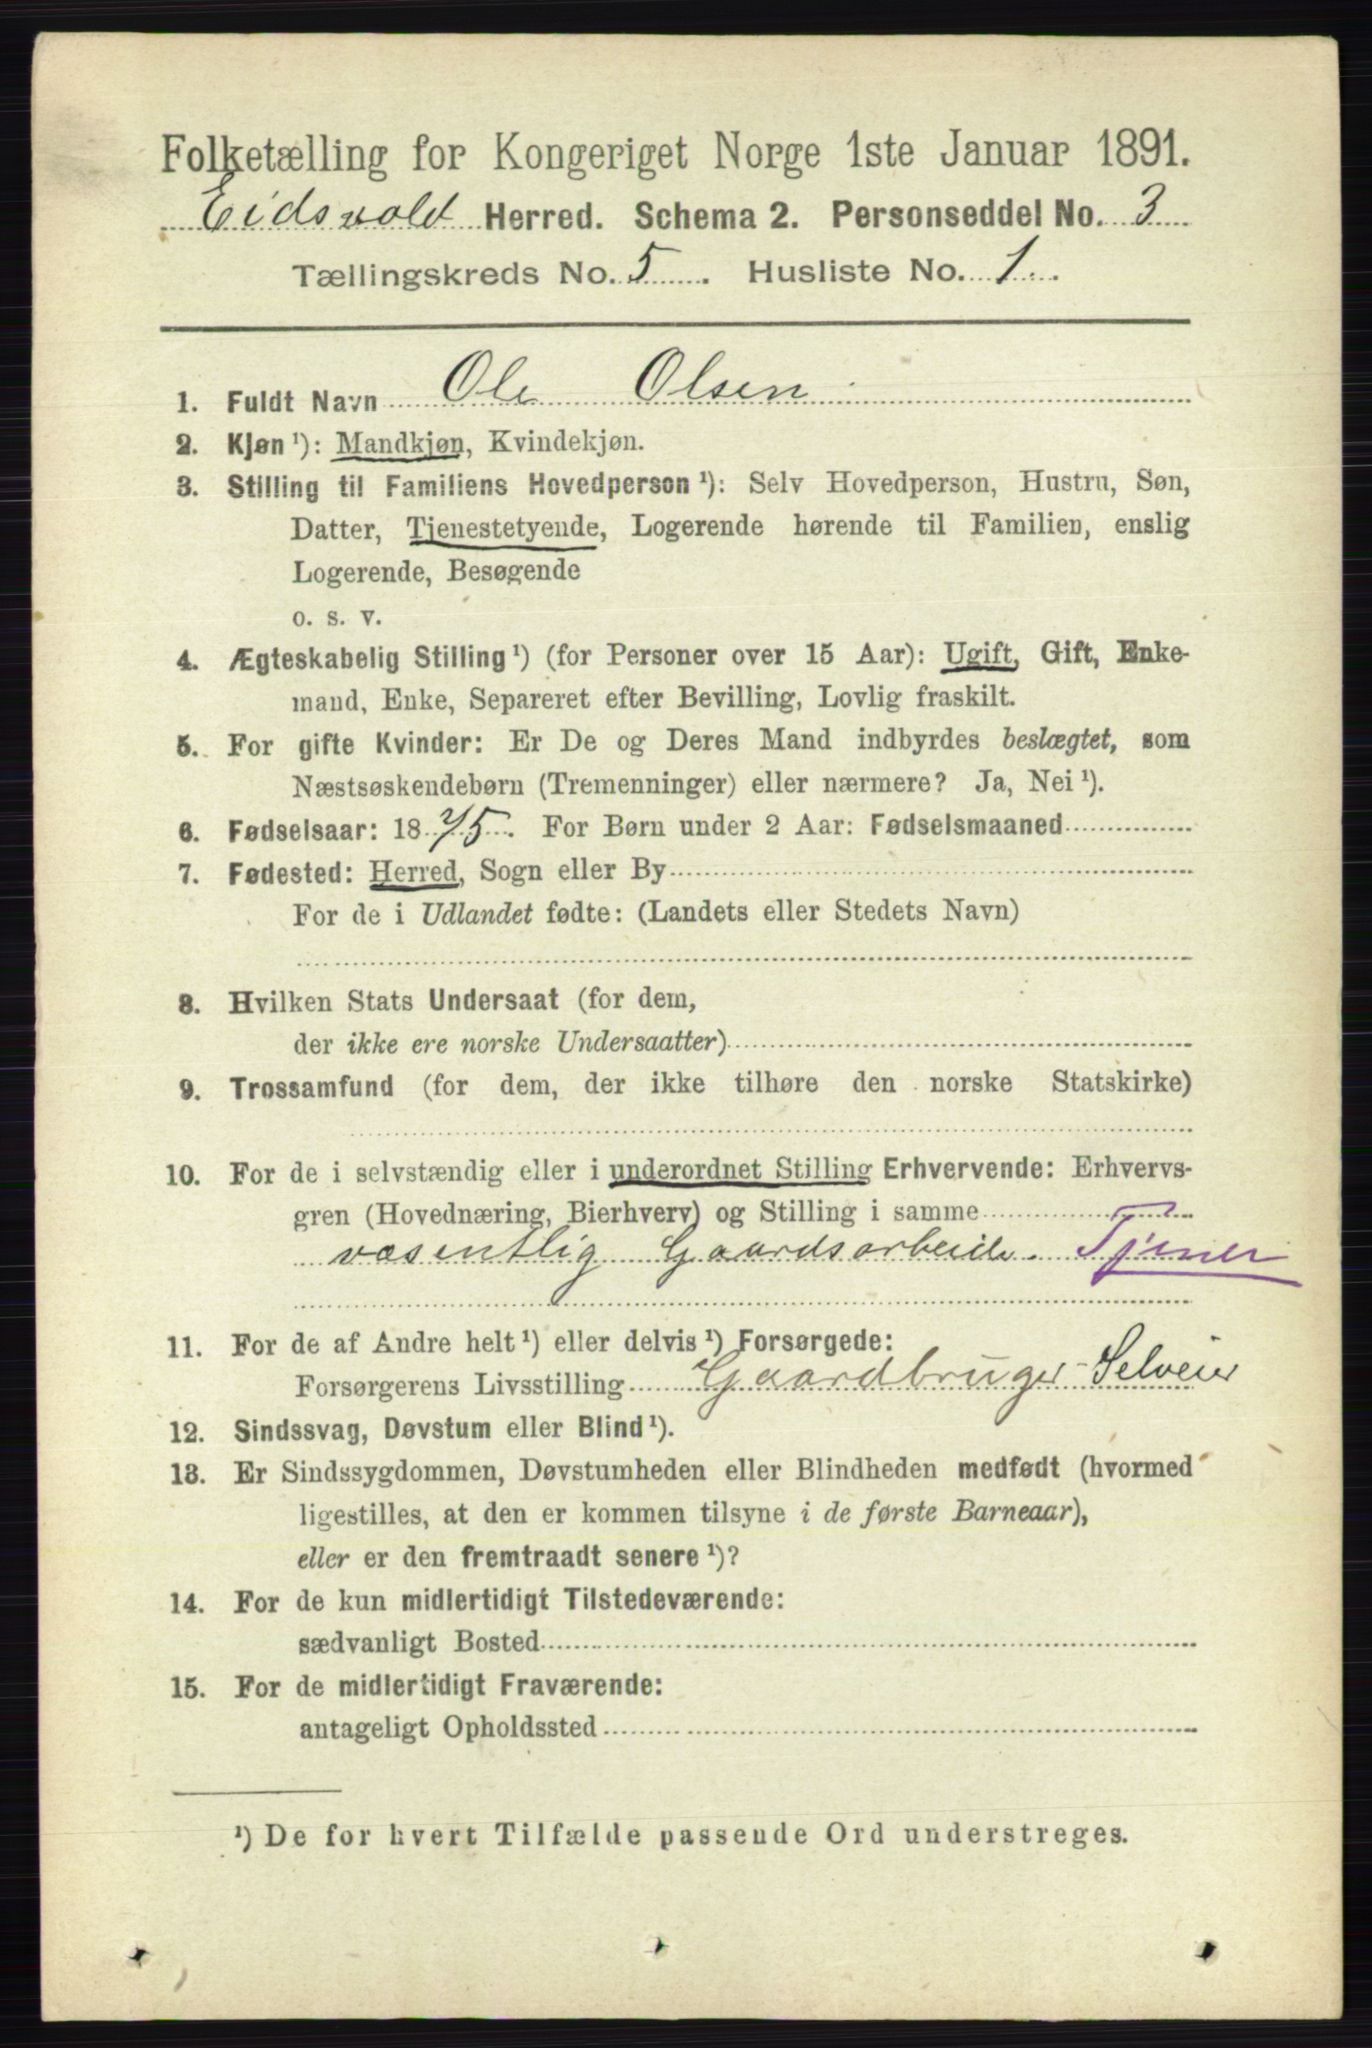 Folketælling for Kongeriget Norge 1ste Januar 1891.
Eidsvold Herred. Schema 2. Personseddel No. 3
Tællingskreds No. 5. Husliste No. 1.
1. Fuldt Navn Ole Olsen
2. Kjøn ¹): Mandkjøn, Kvindekjøn.
3. Stilling til Familiens Hovedperson ¹): Selv Hovedperson, Hustru, Søn,
Datter, Tjenestetyende, Logerende hørende til Familien, enslig
Logerende, Besøgende
o. s. v.
4. Ægteskabelig Stilling ¹) (for Personer over 15 Aar): Ugift, Gift, Enke-
mand, Enke, Separeret efter Bevilling, Lovlig fraskilt.
5. For gifte Kvinder: Er De og Deres Mand indbyrdes beslægtet, som
Næstsøskendebørn (Tremenninger) eller nærmere? Ja, Nei ¹).
6. Fødselsaar: 1875. For Børn under 2 Aar: Fødselsmaaned
7. Fødested: Herred, Sogn eller By
For de i Udlandet fødte: (Landets eller Stedets Navn)
8. Hvilken Stats Undersaat (for dem,
der ikke ere norske Undersaatter)
9. Trossamfund (for dem, der ikke tilhøre den norske Statskirke)
10. For de i selvstændig eller i underordnet Stilling Erhvervende: Erhvervs-
gren (Hovednæring, Bierhverv) og Stilling i samme
væsentlig Gaardsarbeide. Tjener
11. For de af Andre helt ¹) eller delvis ¹) Forsørgede:
Forsørgerens Livsstilling Gaardbruger-Selveier
12. Sindssvag, Døvstum eller Blind ¹).
13. Er Sindssygdommen, Døvstumheden eller Blindheden medfødt (hvormed
ligestilles, at den er kommen tilsyne i de første Barneaar),
eller er den fremtraadt senere ¹)?
14. For de kun midlertidigt Tilstedeværende:
sædvanligt Bosted
15. For de midlertidigt Fraværende:
antageligt Opholdssted
¹) De for hvert Tilfælde passende Ord understreges.